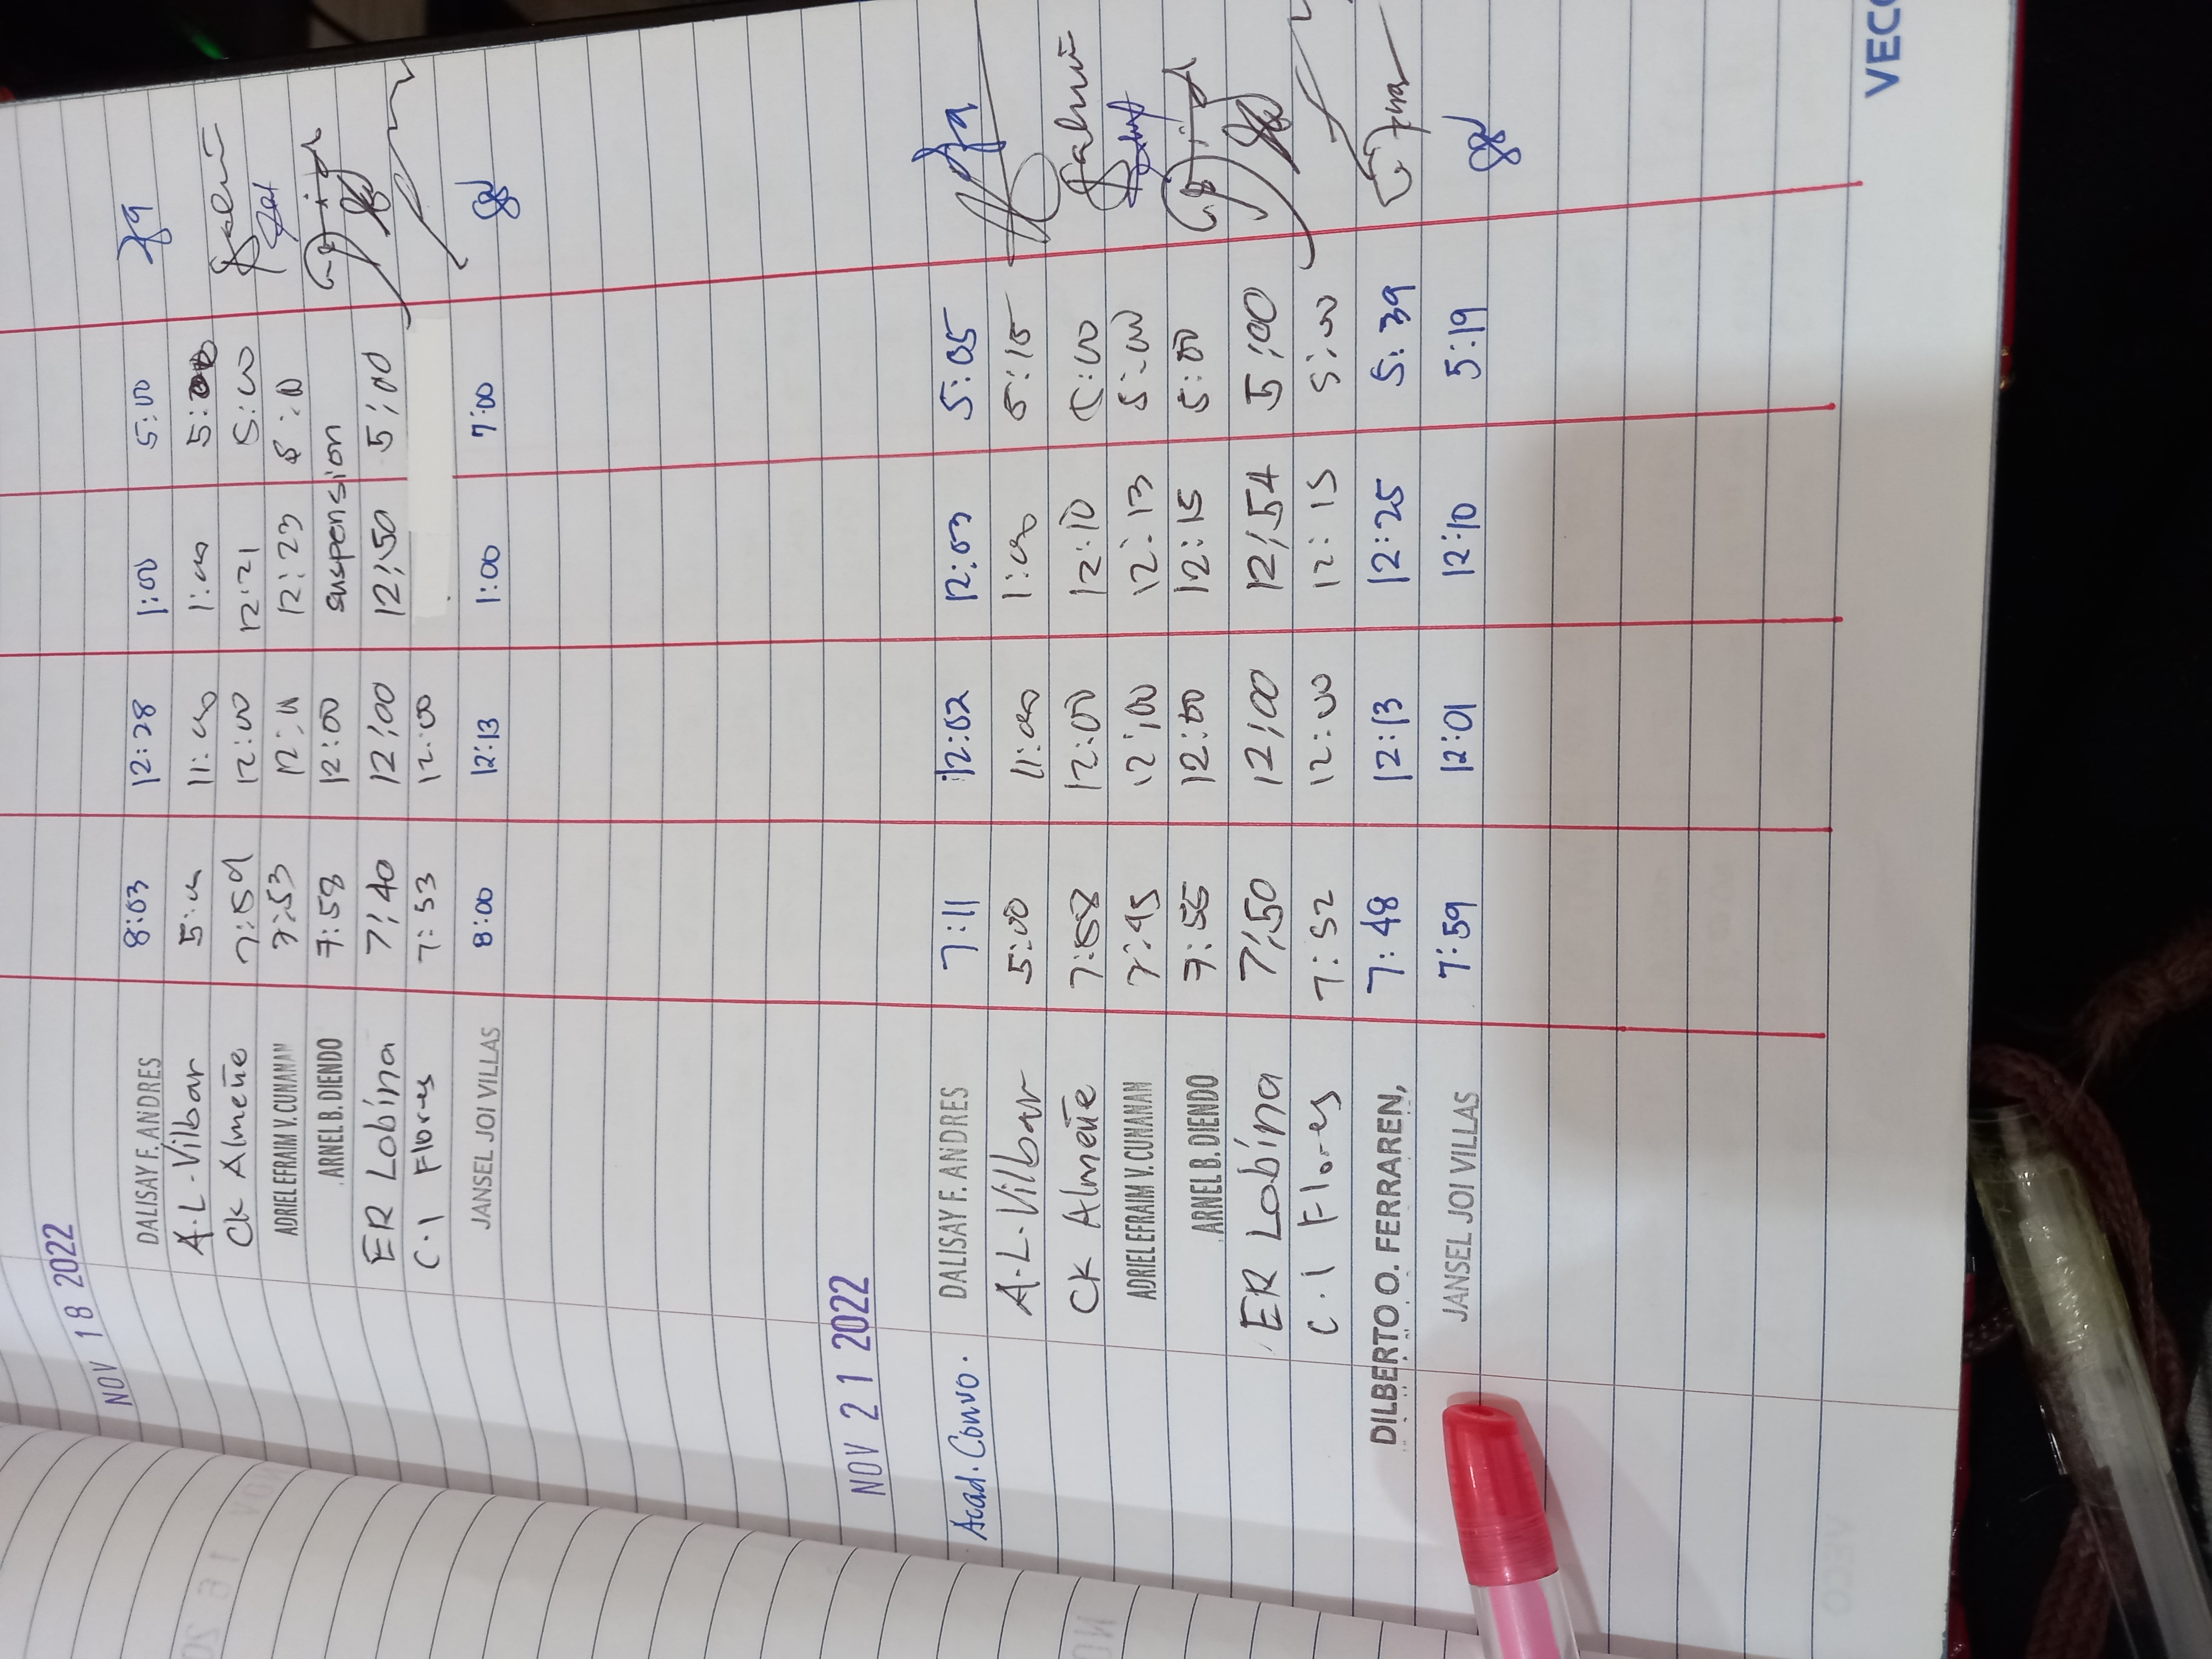 NOV 18 2022
NOV 18 2022
DALISAY F. ANDRES 8:03 12:28 1:00 5:00
A.L. Vilbar 5:00 11:00 1:00 5:00
CK Almeñe 7:59 12:00 12:21 5:00
ADRIEL EFRAIM V. CUNANAN 7:53 12:11 12:23 5:00
ARNEL B. DIENDO 7:58 12:00 suspension
ER Lobina 7:40 12:00 12:50 5:00
C.I Flores 7:53 12:00
JANSEL JOI VILLAS 8:00 12:13 1:00 7:00
NOV 21 2022
Acad. Convo. DALISAY F. ANDRES 7:11 12:02 12:03 5:05
A.L. Vilbar 5:00 11:00 1:00 5:15
CK Almeñe 7:58 12:00 12:10 5:00
ADRIEL EFRAIM V. CUNANAN 7:45 12:00 12:13 5:00
ARNEL B. DIENDO 7:55 12:00 12:15 5:00
ER Lobina 7:50 12:00 12:54 5:00
C.I Flores 7:52 12:00 12:15 5:00
DILBERTO O. FERRAREN, 7:48 12:13 12:25 5:39
JANSEL JOI VILLAS 7:59 12:01 12:10 5:19